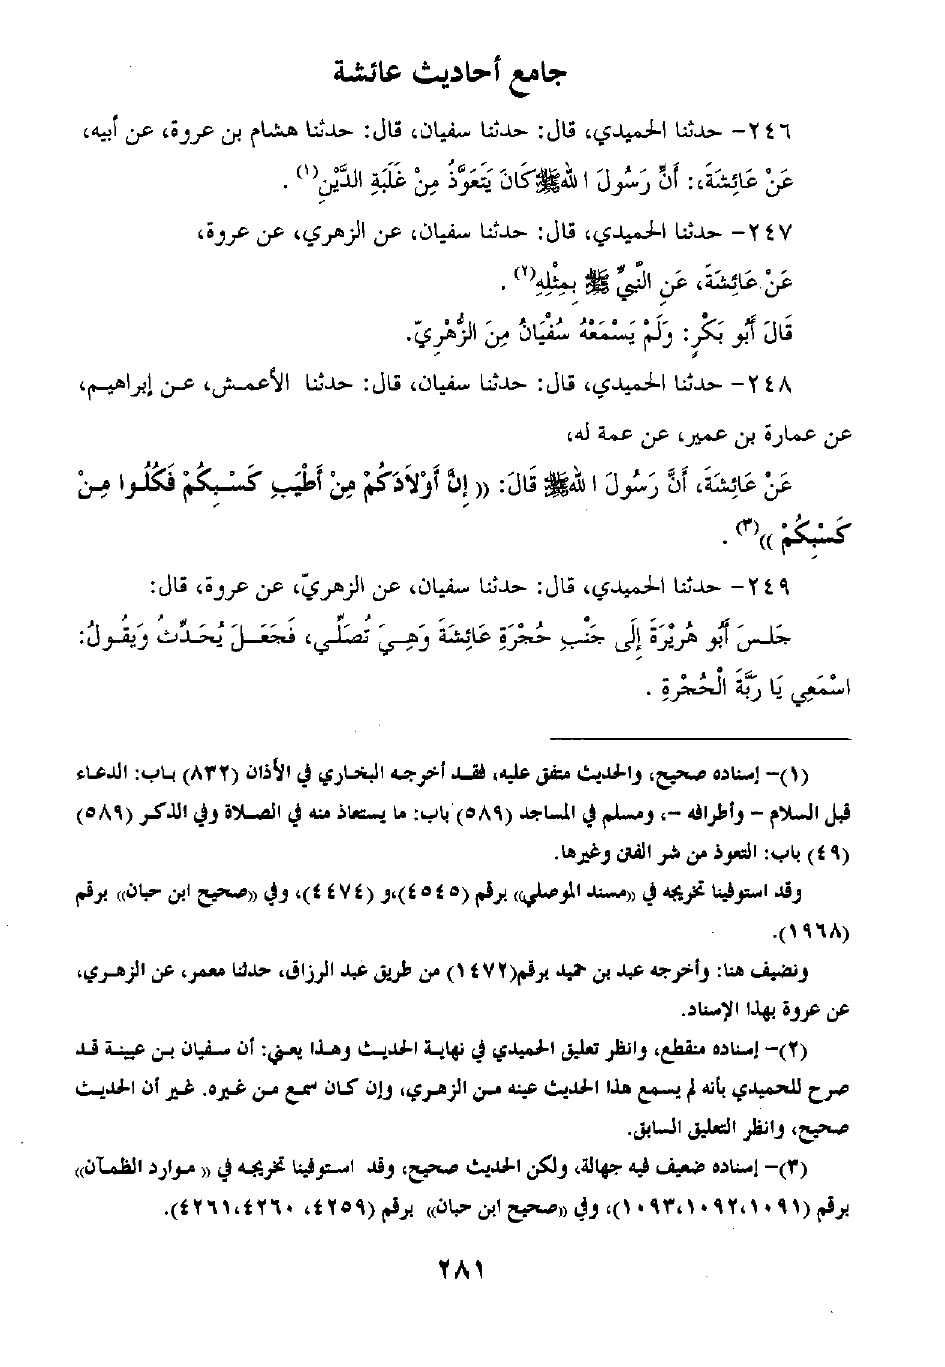 جامع أحاديث عائشة
٢٤٦- حدثنا الحميدي، قال: حدثنا سفيان، قال: حدثنا هشام بن عروة، عن أبيه،
عَنْ عَائِشَةَ،: أَنَّ رَسُولَ اللهِ ﷺ كَانَ يَتَعَوَّذُ مِنْ غَلَبَةِ الدَّيْنِ(١) .
٢٤٧- حدثنا الحميدي، قال: حدثنا سفيان، عن الزهري، عن عروة،
عَنْ عَائِشَةَ، عَنِ النَّبِيِّ ﷺ بِمِثْلِهِ(٢) .
قَالَ أَبُو بَكْرٍ: وَلَمْ يَسْمَعْهُ سُفْيَانُ مِنَ الزُّهْرِيِّ.
٢٤٨- حدثنا الحميدي، قال: حدثنا سفيان، قال: حدثنا الأعمش، عن إبراهيم،
عن عمارة بن عمير، عن عمة له،
عَنْ عَائِشَةَ، أَنَّ رَسُولَ اللهِ ﷺ قَالَ: (( إِنَّ أَوْلَادَكُمْ مِنْ أَطْيَبِ كَسْبِكُمْ فَكُلُوا مِنْ
كَسْبِكُمْ ))(٣) .
٢٤٩- حدثنا الحميدي، قال: حدثنا سفيان، عن الزهريّ، عن عروة، قال:
جَلَسَ أَبُو هُرَيْرَةَ إِلَى جَنْبِ حُجْرَةِ عَائِشَةَ وَهِيَ تُصَلِّي، فَجَعَلَ يُحَدِّثُ وَيَقُولُ:
اسْمَعِي يَا رَبَّةَ الْحُجْرَةِ .
(١)- إسناده صحيح، والحديث متفق عليه، فقد أخرجه البخاري في الأذان (٨٣٢) باب: الدعاء
قبل السلام - وأطرافه -، ومسلم في المساجد (٥٨٩) باب: ما يستعاذ منه في الصلاة وفي الذكر (٥٨٩)
(٤٩) باب: التعوذ من شر الفتن وغيرها.
وقد استوفينا تخريجه في ((مسند الموصلي)) برقم (٤٥٤٥)،و (٤٤٧٤)، وفي ((صحيح ابن حبان)) برقم
(١٩٦٨).
ونضيف هنا: وأخرجه عبد بن حميد برقم(١٤٧٢) من طريق عبد الرزاق، حدثنا معمر، عن الزهري،
عن عروة بهذا الإسناد.
(٢)- إسناده منقطع، وانظر تعليق الحميدي في نهاية الحديث وهذا يعني: أن سفيان بن عيينة قد
صرح للحميدي بأنه لم يسمع هذا الحديث عينه من الزهري، وإن كان سمع من غيره. غير أن الحديث
صحيح، وانظر التعليق السابق.
(٣)- إسناده ضعيف فيه جهالة، ولكن الحديث صحيح، وقد استوفينا تخريجه في (( موارد الظمآن))
برقم (١٠٩١،١٠٩٢،١٠٩٣)، وفي ((صحيح ابن حبان)) برقم (٤٢٥٩، ٤٢٦٠،٤٢٦١).
٢٨١